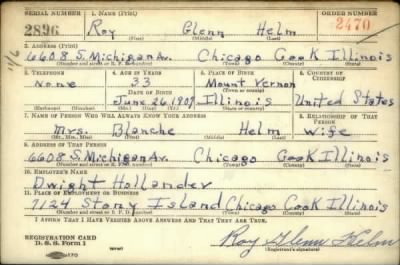 SERIAL NUMBER 1. NAME (Print) ORDER NUMBER
2896 Roy Glenn Helm 2470
(First) (Middle) (Last)
2. ADDRESS (Print)
6608 S. Michigan Av. Chicago Cook Illinois
(Number and street or R. F. D. number) (Town) (County) (State)
3. TELEPHONE 4. AGE IN YEARS 5. PLACE OF BIRTH 6. COUNTRY OF CITIZENSHIP
None 33 Mount Vernon
DATE OF BIRTH (Town or county)
June 26, 1907 Illinois United States
(Exchange) (Number) (Mo.) (Day) (Yr.) (State or country)
7. NAME OF PERSON WHO WILL ALWAYS KNOW YOUR ADDRESS 8. RELATIONSHIP OF THAT PERSON
Mrs. Blanche Helm Wife
(Mr., Mrs., Miss) (First) (Middle) (Last)
9. ADDRESS OF THAT PERSON
6608 S. Michigan Av. Chicago Cook Illinois
(Number and street or R. F. D. number) (Town) (County) (State)
10. EMPLOYER'S NAME
Dwight Hollander
11. PLACE OF EMPLOYMENT OR BUSINESS
7124 Stony Island Chicago Cook Illinois
(Number and street or R. F. D. number) (Town) (County) (State)
I AFFIRM THAT I HAVE VERIFIED ABOVE ANSWERS AND THAT THEY ARE TRUE.
REGISTRATION CARD
D. S. S. Form 1
Roy Glenn Helm